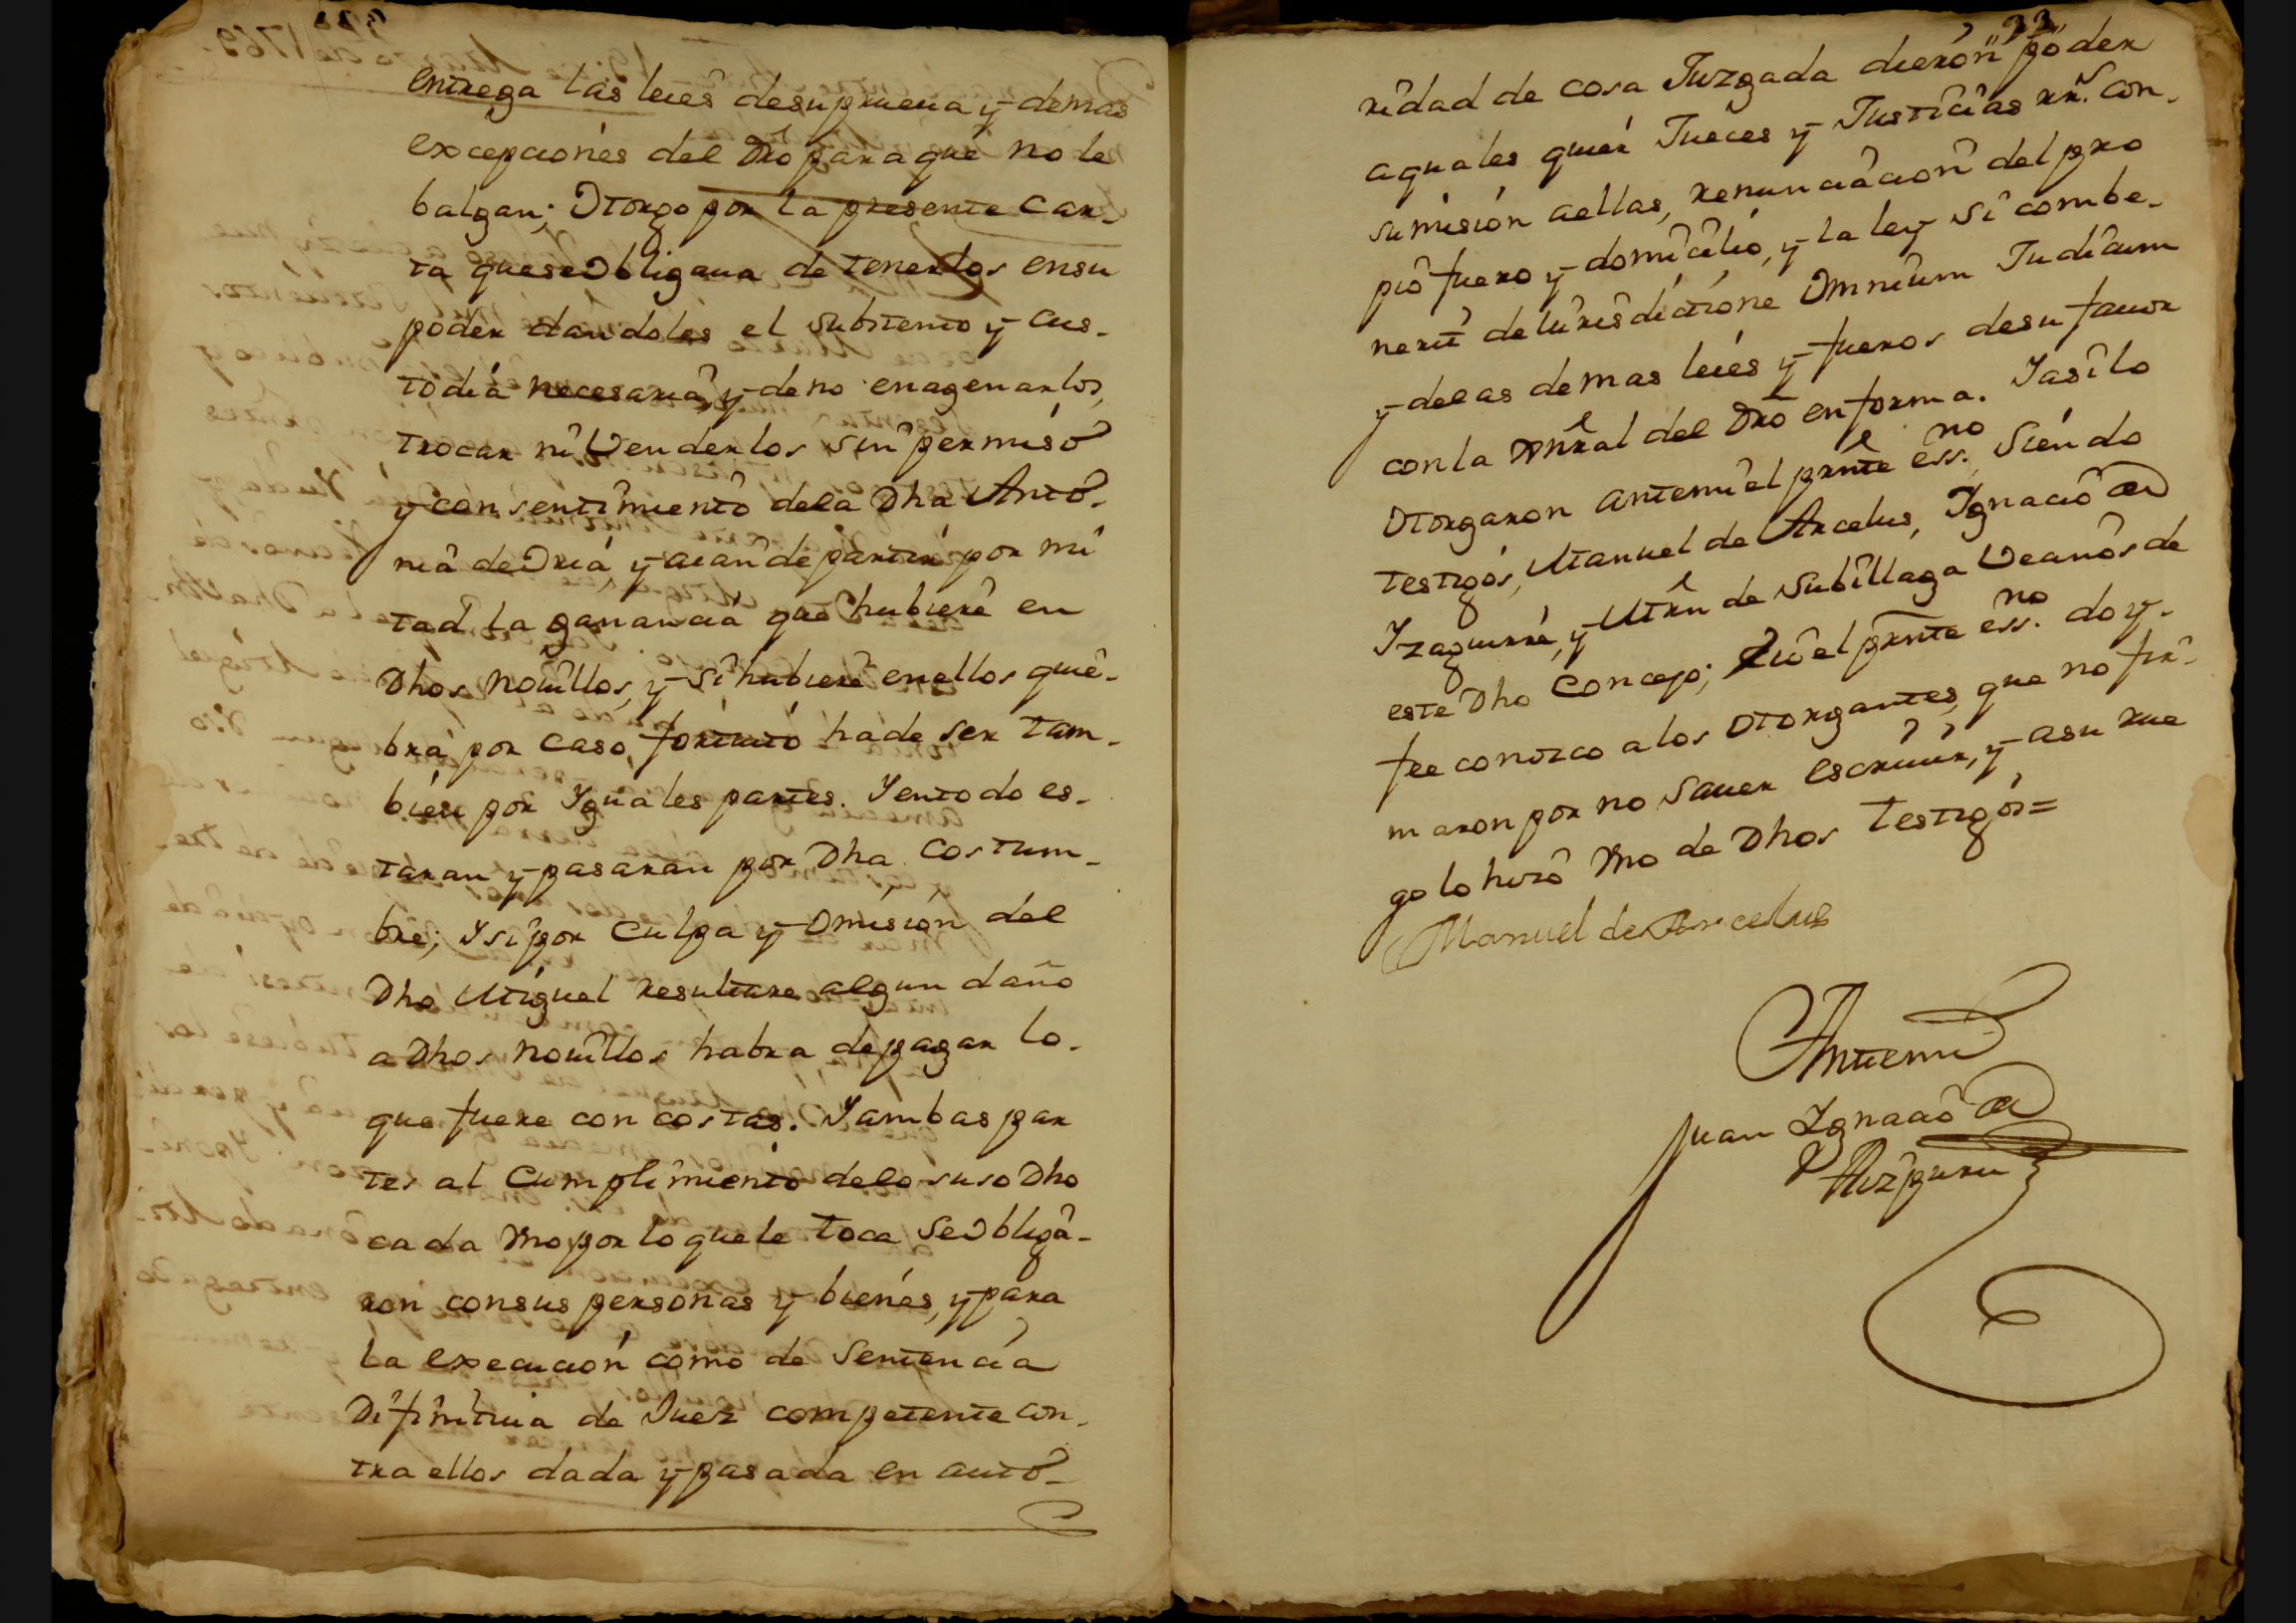 entrega las leies desuprueua y demas
excepciones del Dro paraque no le
balgan; Otorgo por la presente car-
ta queseObligaua de tenerlos ensu
poder dandoles el subsiento y cus-
todia necesaria, y deno enagenarlos,
trocar ni Venderlos sin permiso
y consentimiento dela Dha Anto-
nia de Oria, y aiande partir por mi
tad la ganancia que hubiere en
Dhos nouillos, y si hubiere enellos quie-
bra por caso, fortuito hade ser tam-
bien por Yguales partes. Yentodo es-
taran y pasaran por Dha costum-
bre; Ysi por Culpa y Omision del
Dho Miguel resultare algun daño
a Dhos nouillos habra depagar lo-
que fuere con costas. Yambas par
tes al Cumplimiento delo suso Dho
cada Vno por loquele toca seObliga-
ron consus personas y bienes, y para
la execucion como de Sentencia
Difinitiua de Juez competente con-
tra ellos dada y pasada en auto-
33
ridad de cosa Juzgada dieron poder
aquales quier Jueces y Justicias rr.s con-
sumision aellas, renunciacion del pro
pio fuero y domicilio, y la ley si combe-
nerit de Iurisdictione Omnium Iudicum
y delas demas leies y fueros desu fauor
conla Gnral del Dro enforma. Yasilo
Otorgaron antemi el prnte ess.no Siendo
testigos, Manuel de Arcelus, Ygnacio de
Yzaguirre, y Mrn de Subillaga Vecinos de
este Dho Concejo; Yio el prnte ess.no doy-
fee conozco alos Otorgantes, que no fir-
maron por no sauer escriuir, y asu rue
go lo hizo Vno de Dhos testigos=
Manuel de Arcelus
Antemi
Juan Ygnacio de
Aizpuru